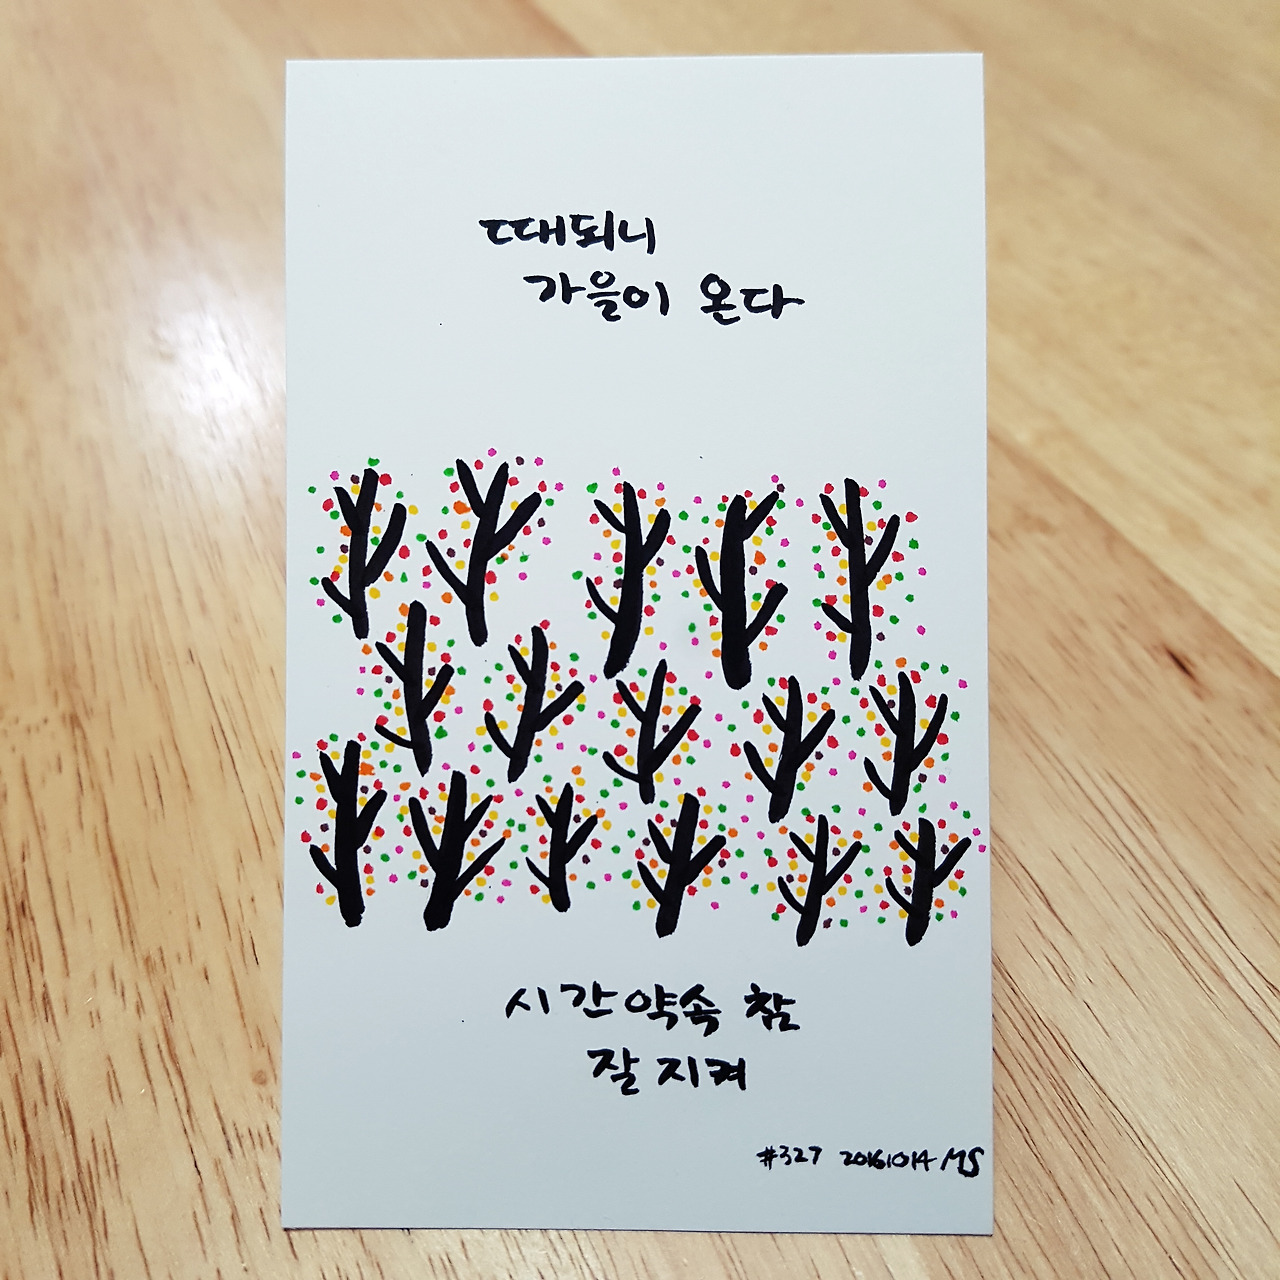 때되니
가을이 온다
시간약속 참
잘 지켜
#327 20161014 MS